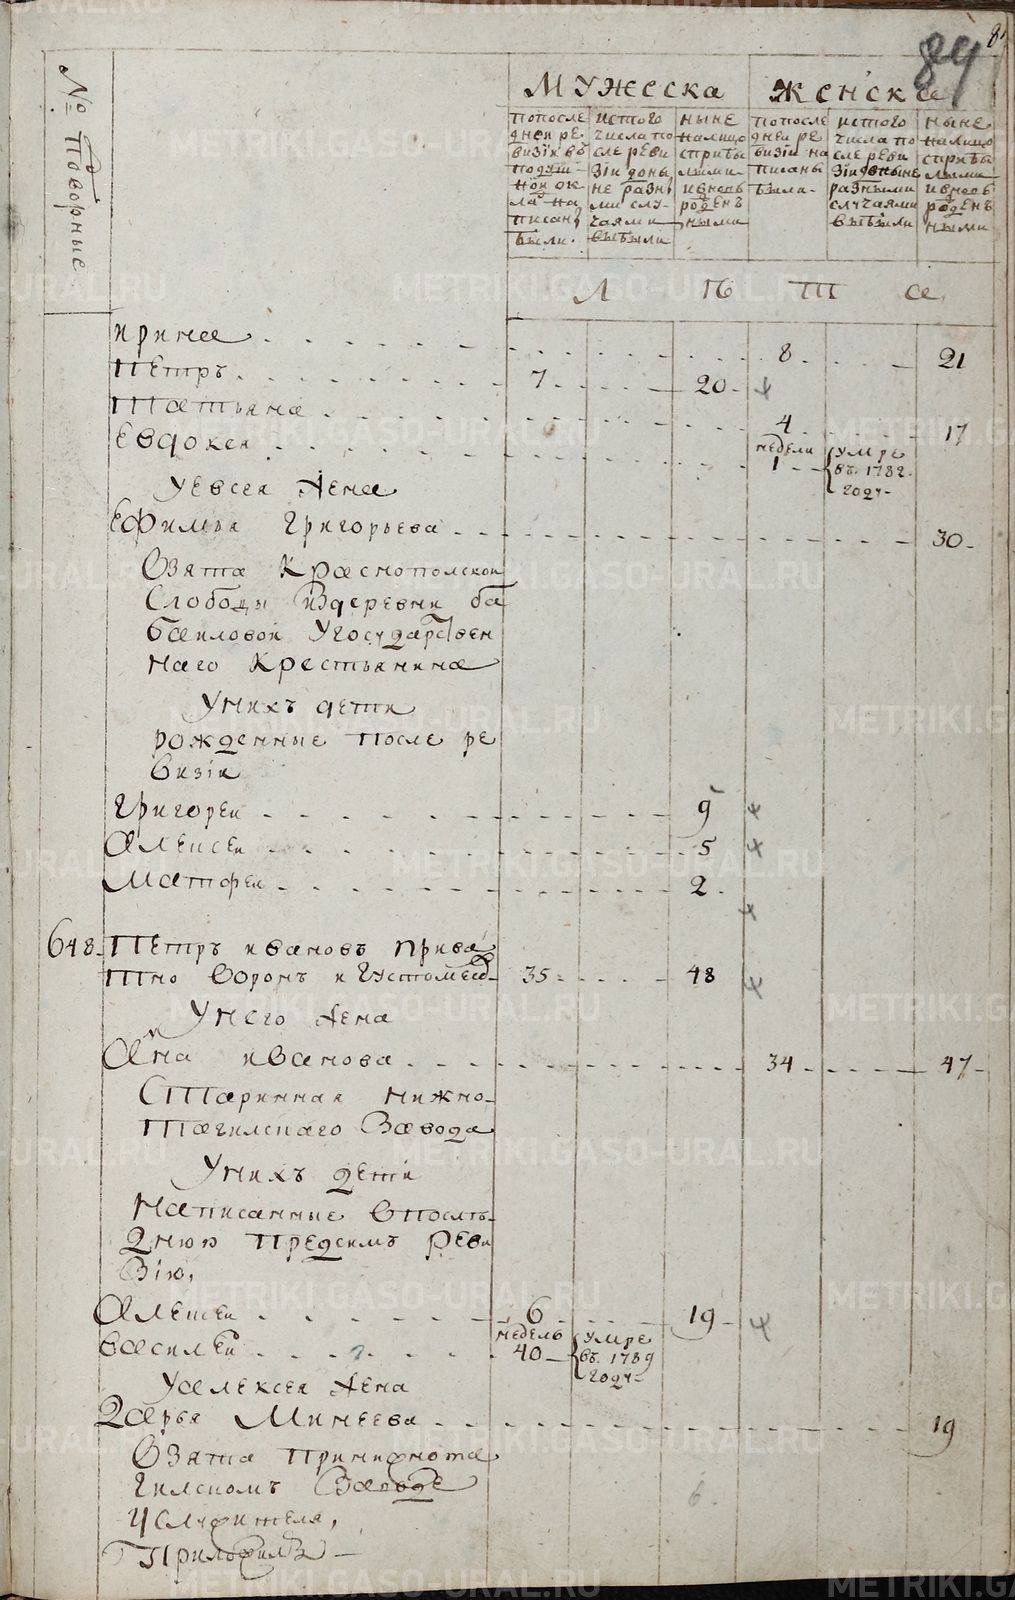 84
№ Подворные
Мужеска Женска
по последней ревизіи въ подушной оклад написаны были.
ис того числа после ревизіи до ныне разными случаями выбыли
ныне налицо с прибылыми и вновь рожденными
по последней ревизіи написаны были.
ис того числа после ревизіи до ныне разными случаями выбыли
ныне налицо с прибылыми и вновь рожденными
Л Ѣ Т А
ирина 8 21
Петръ 7 20
Татьяна 4 17
Евдокея недели 1 умре въ 1782 году
У евсея жена
Ефимья Григорьева 30
Взята Краснопольской
Слободы из деревни ба
баиловой У государствен
наго Крестьянина
У нихъ дети
рожденные после ре
визіи
Григореи 9
Алексеи 5
Матфеи 2
648 Петръ ивановъ
35 48
У него жена
Анна иванова 34 47
Старинная нижно
тагилскаго Завода
У нихъ дети
Написанные в послѣ
днюю предсимъ Реви
зію,
Алексеи 6 19
Василеи недель 40 умре въ 1789 году
У алексея жена
Дарья Минеева 19
Взята при нижнота
гилскомъ Заводе